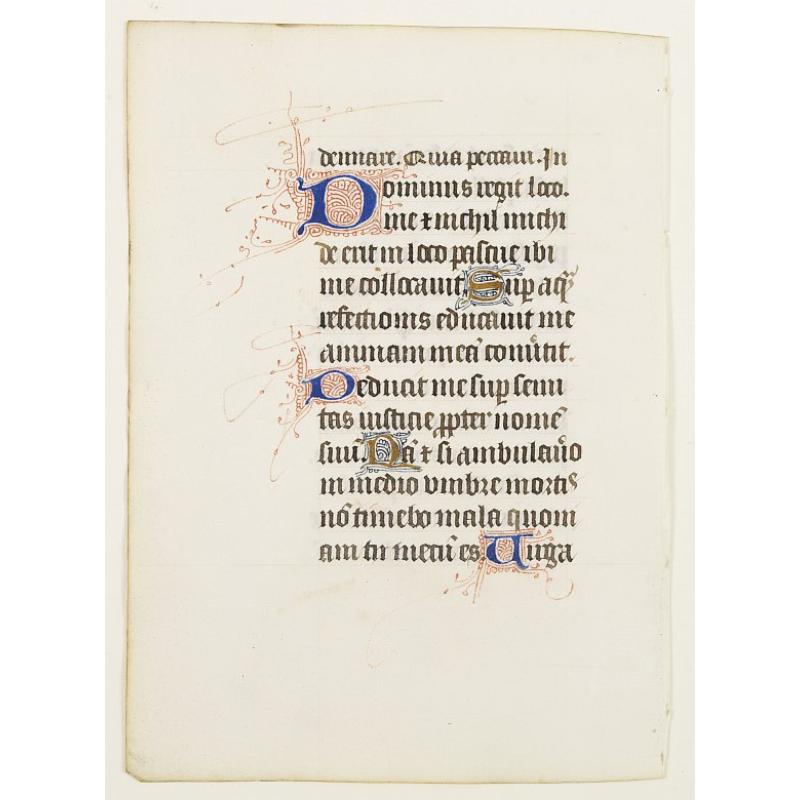 dempnare. Quia peccaui. In
Dominus regit loco.
me ⁊ nichil michi
deerit in loco pascue ibi
me collocauit Sup̱ aq̄ꝫ
refectionis educauit me
animam meā conu̓tit.
Deducit me sup̱ semi
tas iusticie ꝓpter nomē
suū. Nā ⁊ si ambulau̓o
in medio vmbre mortis
nō timebo mala quoni
am tu mecū es. Uirga